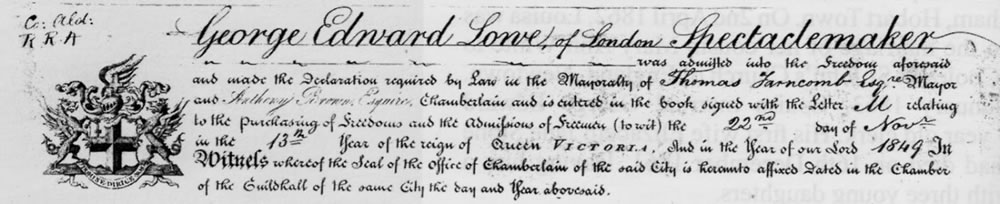 Co: Ald:
R R A
George Edward Lowe, of London Spectaclemaker,
was admitted into the Freedom aforesaid
and made the Declaration required by Law in the Mayoralty of Thomas Farncomb Esqre. Mayor
and Anthony Brown, Esquire, Chamberlain and is entered in the book signed with the Letter M relating
to the Purchasing of Freedoms and the Admissions of Freemen (to wit) the 22nd day of Novr
in the 13th Year of the reign of Queen VICTORIA. And in the Year of our Lord 1849 In
Witness whereof the Seal of the Office of Chamberlain of the said City is hereunto affixed Dated in the Chamber
of the Guildhall of the same City the day and Year abovesaid.
DOMINE DIRIGE NOS